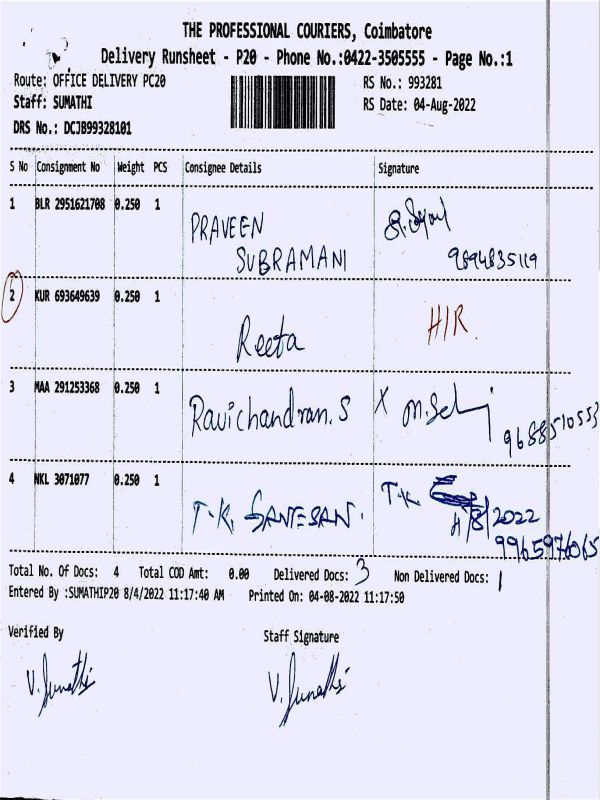 THE PROFESSIONAL COURIERS, Coimbatore
Delivery Runsheet - P20 - Phone No.:0422-3505555 - Page No.:1
Route: OFFICE DELIVERY PC20 RS No.: 993281
Staff: SUMATHI RS Date: 04-Aug-2022
DRS No.: DCJB99328101
S No Consignment No Weight PCS Consignee Details Signature
1 BLR 2951621708 0.250 1
PRAVEEN
SUBRAMANI 9894835119
2 KUR 693649639 0.250 1
Reeta H/R.
3 MAA 291253368 0.250 1
Ravichandran. S X 9688510553
4 NKL 3071077 0.250 1
T.K. GANESAN. T.K.
4/8/2022
9965976065
Total No. Of Docs: 4 Total COD Amt: 0.00 Delivered Docs: 3 Non Delivered Docs: 1
Entered By :SUMATHIP20 8/4/2022 11:17:40 AM Printed On: 04-08-2022 11:17:50
Verified By Staff Signature
V. Sumathi V. Sumathi